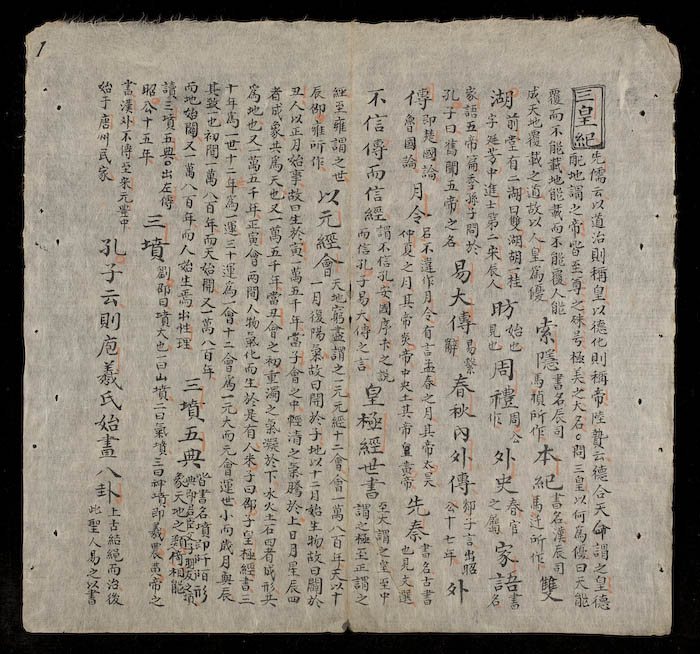 三皇紀 先儒云以道治則稱皇以德化則稱帝陸贄云德合天命謂之皇德
配地謂之帝皆至尊之殊号極美之大名○問三皇以何萬優曰天能
覆而不能載地能載而不能覆人能
成天地覆載之道故以人皇爲優
索隱 書名辰司
馬禎所作
本紀 書名漢辰司
馬迁所作
雙
湖 前堂有二湖曰雙湖胡一桂
字廷芳中進士第二宋辰人
昉 始也
見也
周禮 周公
作
外史 春官
之属
家語 書
名
家語五帝篇季孫子問於
孔子曰舊聞五帝之名
易大傳 易繫
辭
春秋內外傳 郯子言出昭
公十七年
外
傳 即楚國論
魯國論
月令 呂不違作月令有言孟春之月其帝太昊
仲夏之月其帝炎帝中央土其帝黃帝
先秦 書名古書
也見文選
不信傳而信經 謂不信孔安國序卞之說
而信孔子易大傳之言
皇極經世書 至大謂之皇至中
謂之極至正謂之
經至雍謂之世
辰卲雍所作
以元經會 天地窮盡謂之一元元經十二會會一萬八百年天以十
一月復陽氣故曰開於子地以十二月始生物故曰闢於
丑人以正月始事故曰生於寅一萬五千年當子會之中輕清之氣騰於上日月星辰四
者成象共爲天也又一萬五千年當丑會之初重濁之氣凝於下水火土石四者成形共
爲地也又一萬五千年正寅會兩間人物氣化而生於是有人朱子曰邵子皇極經書三
十年爲一世十二年爲一運三十運爲一會十二會爲一元大而元會運世小而歲月與辰
其致一也初間一萬八百年而天始開又一萬八百年
而地始闢又一萬八百年而人始生焉出性理
三墳五典 皆書名墳即阡陌形
象天地之
讀三墳五典出左傳
昭公十五年
三墳 劉邵曰墳大也一曰山墳二曰氣墳三曰神墳即羲農黃帝之
書漢外不傳至宋元豊中
始于唐州民家
孔子云則庖羲氏始畫八卦 上古結繩而治後
此聖人易之以書
1